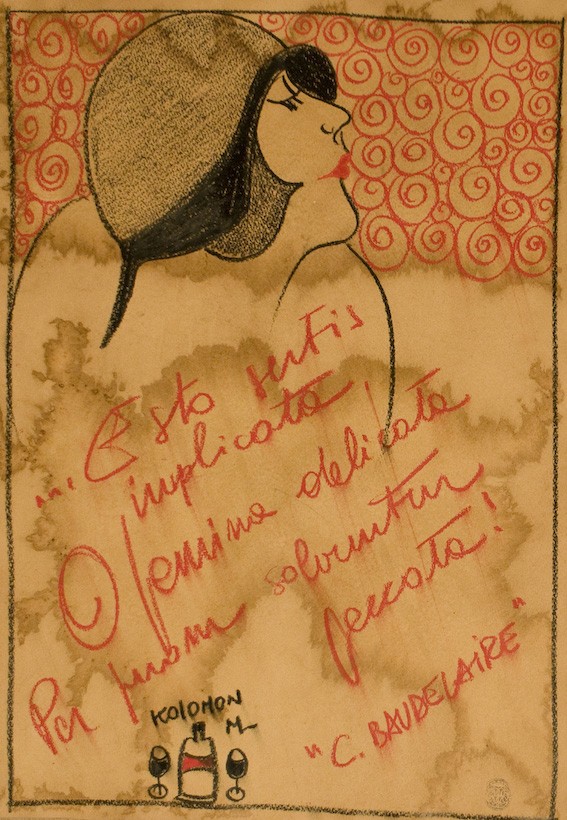 ... Esto sertis
implicata,
O femina delicata
Per quam solvuntur
peccata!
"C. BAUDELAIRE"
KOLOMON
M